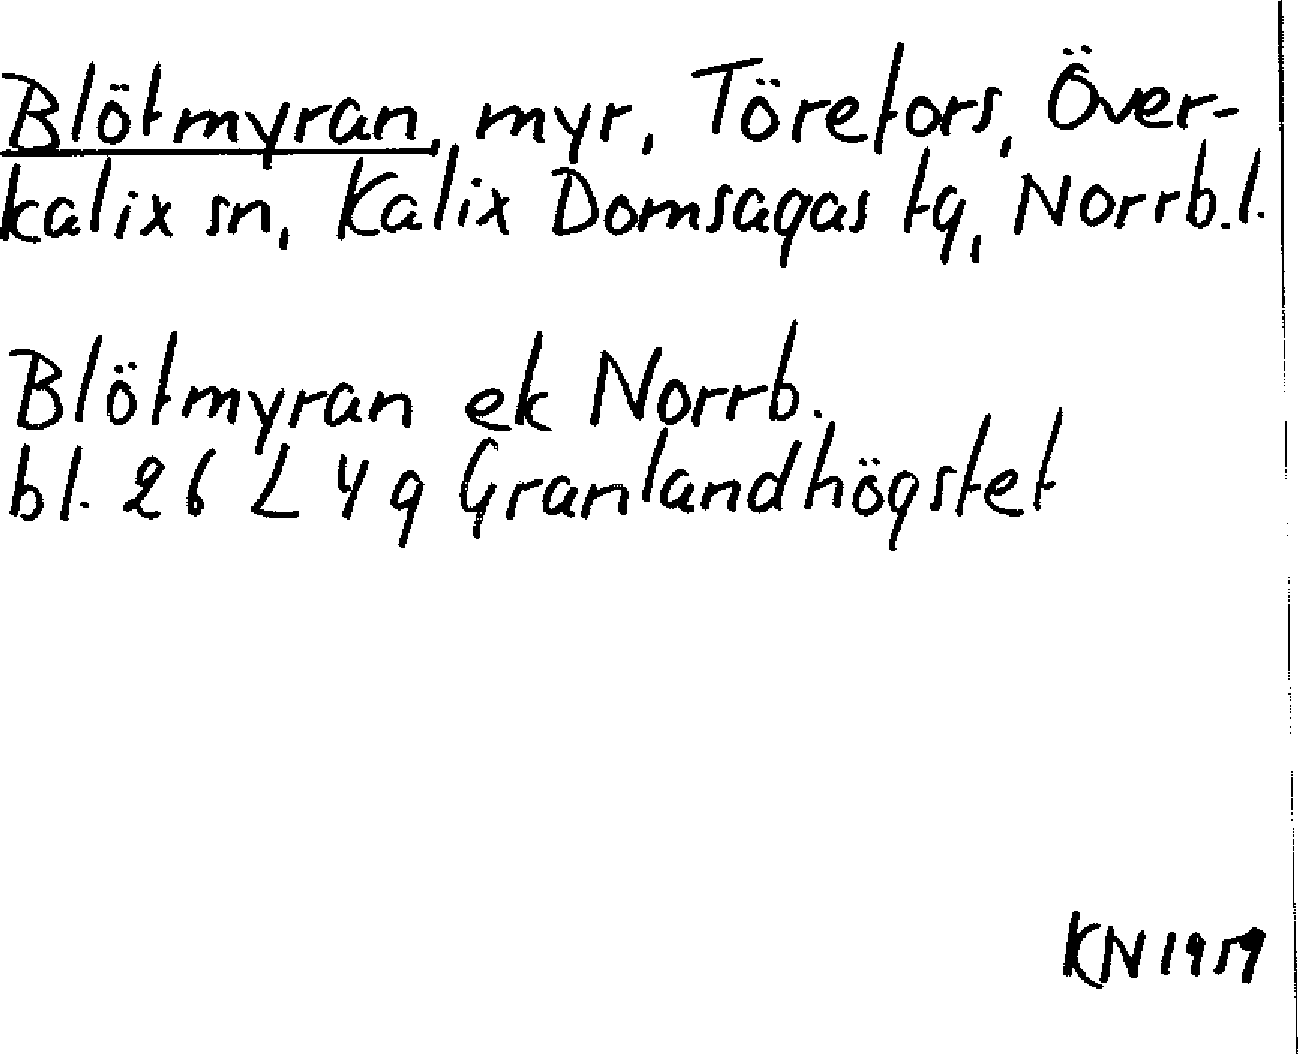 Blötmyran, myr, Törefors, Över-
kalix sn, Kalix Domsagas tg, Norrb.l.
Blötmyran ek Norrb.
bl. 26 L 4 g Granlandhögstet
KN 1959